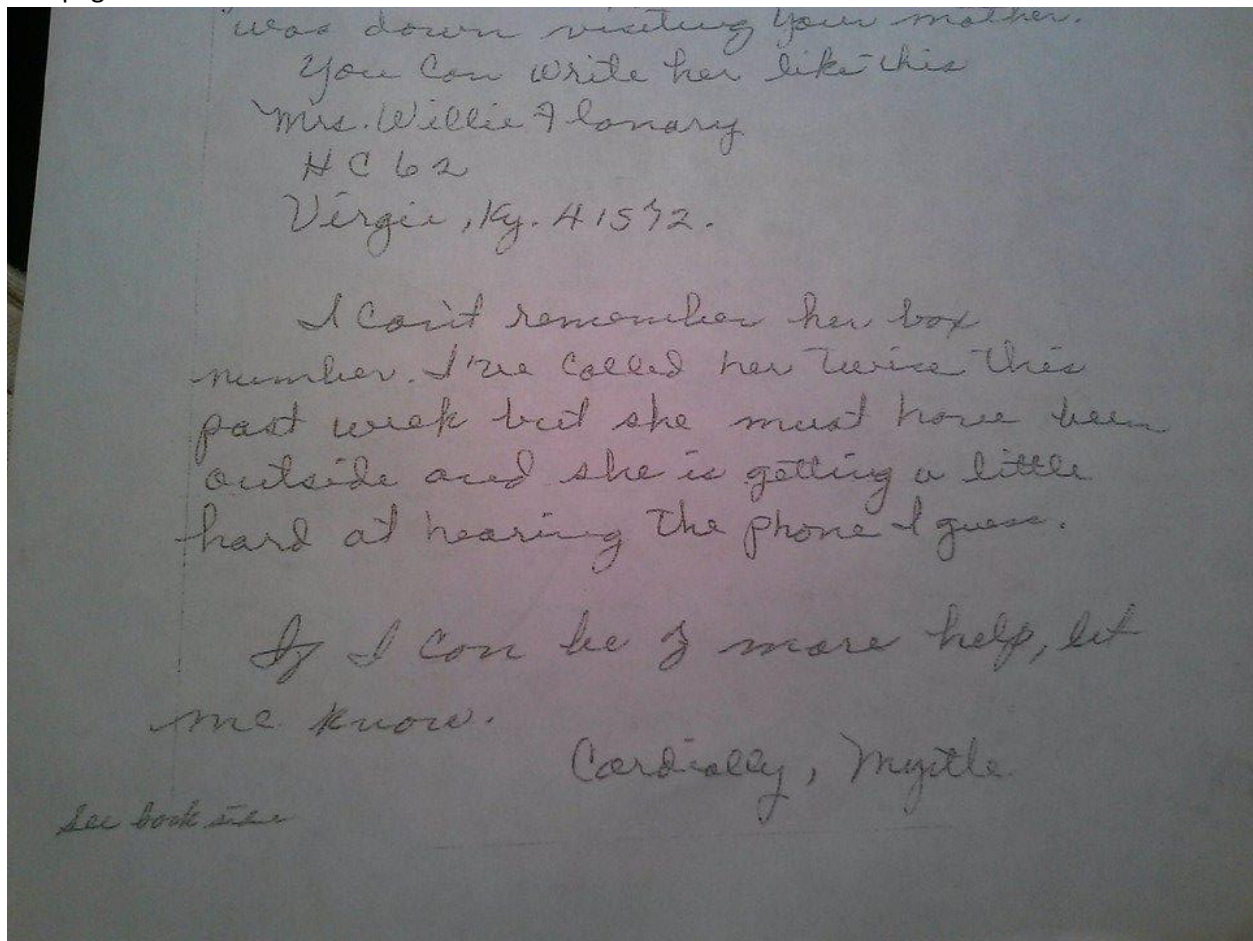 was down visiting your mother.
You can write her like this
Mrs. Willie Flanary
HC 62
Virgie, Ky. 41572.
I can't remember her box
number. I've called her twice this
past week but she must have been
outside and she is getting a little
hard at hearing the phone I guess.
If I can be of more help, let
me know.
Cordially, Myrtle
see back side